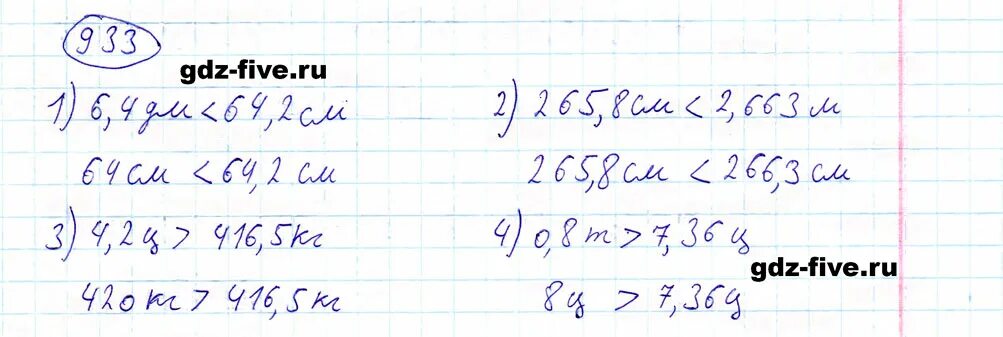 933
gdz-five.ru
1) 6,4 дм < 64,2 см
64 см < 64,2 см
2) 265,8 см < 2,663 м
265,8 см < 266,3 см
3) 4,2 ц > 416,5 кг
420 кг > 416,5 кг
4) 0,8 т > 7,36 ц
gdz-five.ru
8 ц > 7,36 ц